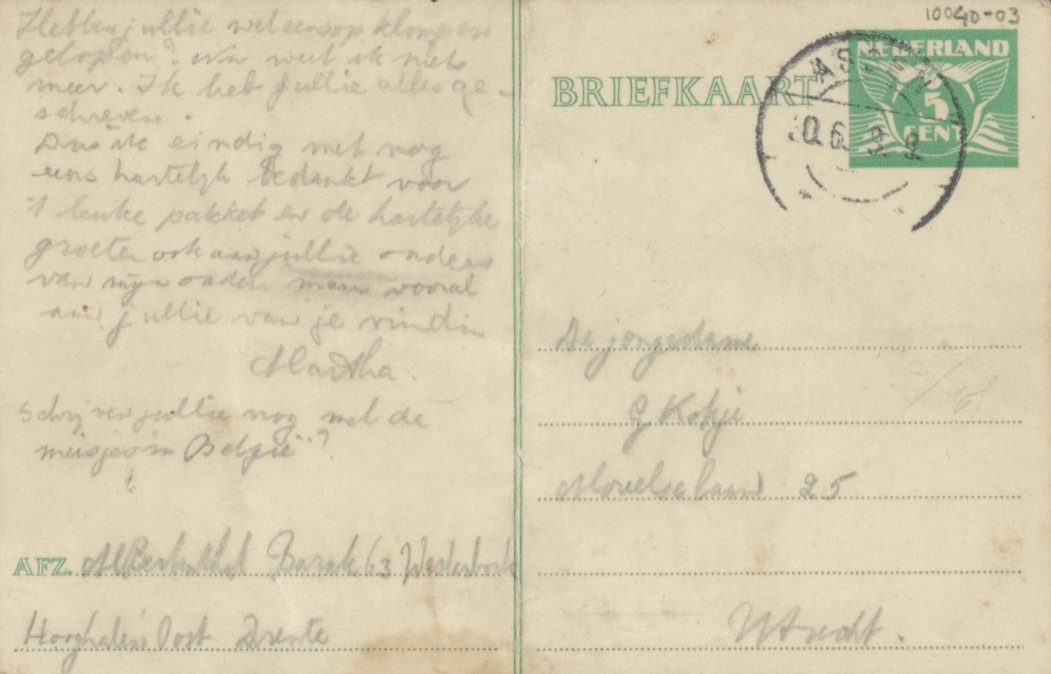 Hebben jullie wel eens op klompen
gelopen? Nu weet ik niet
meer. Ik heb jullie alles ge-
schreven.
Dus ik eindig met nog
eens hartelijk bedankt voor
't leuke pakket en de hartelijke
groeten ook aan jullie ouders
van mijn ouders maar vooral
aan jullie van je vriendin
Martha.
Schrijven jullie nog met de
meisjes in België?
AFZ. M Barak 63 Westerbork
Hooghalen Oost Drente
10040-03
NEDERLAND
5
CENT
BRIEFKAART
ASSEN
De jongedame
G Kotje
Moreelselaan 25
Utrecht.